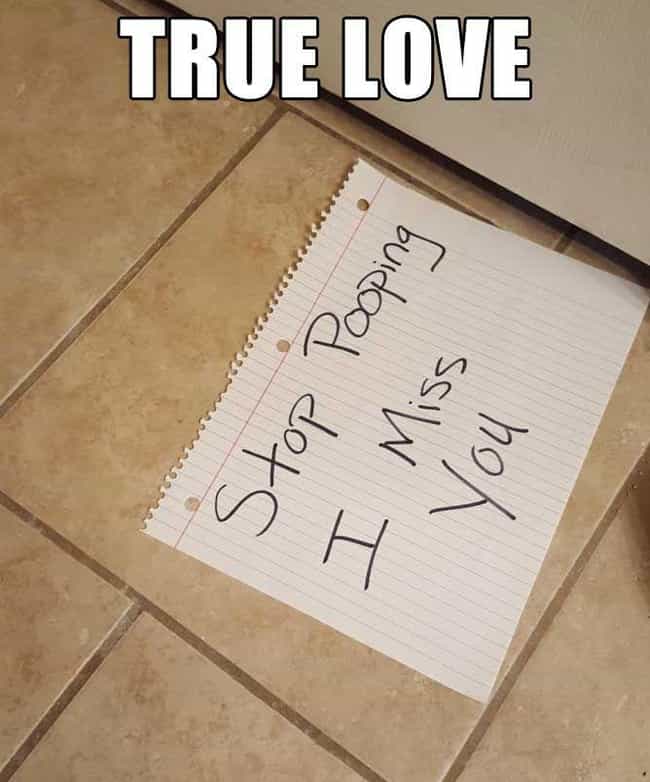 TRUE LOVE
Stop Pooping
I Miss
You